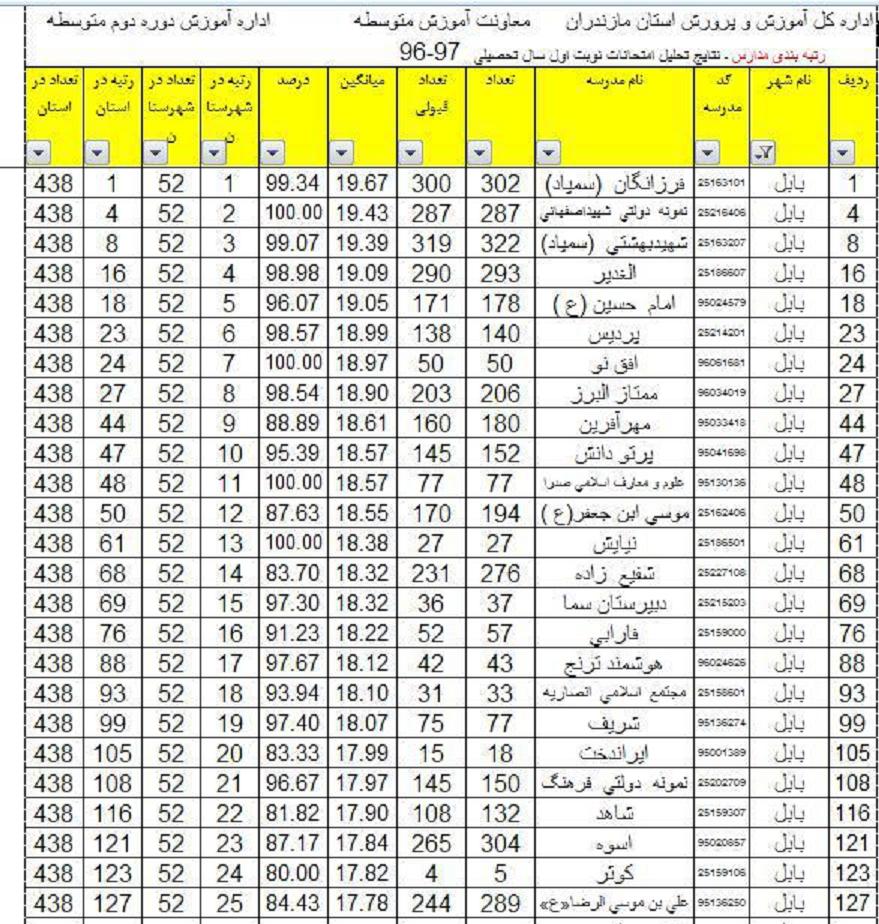 اداره کل آموزش و پرورش استان مازندران معاونت آموزش متوسطه اداره آموزش دوره دوم متوسطه
رتبه بندی مدارس - نتایج تحلیل امتحانات نوبت اول سال تحصیلی 96-97
ردیف نام شهر کد مدرسه نام مدرسه تعداد تعداد قبولی میانگین درصد رتبه در شهرستان تعداد در شهرستان رتبه در استان تعداد در استان
1 بابل 25163101 فرزانگان (سمپاد) 302 300 19.67 99.34 1 52 1 438
4 بابل 25216406 نمونه دولتي شهيداصفهاني 287 287 19.43 100.00 2 52 4 438
8 بابل 25163207 شهیدبهشتي (سمپاد) 322 319 19.39 99.07 3 52 8 438
16 بابل 25186607 الغدير 293 290 19.09 98.98 4 52 16 438
18 بابل 95024579 امام حسين (ع) 178 171 19.05 96.07 5 52 18 438
23 بابل 25214201 پرديس 140 138 18.99 98.57 6 52 23 438
24 بابل 96061681 افق نو 50 50 18.97 100.00 7 52 24 438
27 بابل 96034019 ممتاز البرز 206 203 18.90 98.54 8 52 27 438
44 بابل 95033418 مهرآفرين 180 160 18.61 88.89 9 52 44 438
47 بابل 95041698 پرتو دانش 152 145 18.57 95.39 10 52 47 438
48 بابل 95130136 علوم و معارف اسلامي صدرا 77 77 18.57 100.00 11 52 48 438
50 بابل 25162406 موسي ابن جعفر(ع) 194 170 18.55 87.63 12 52 50 438
61 بابل 25186501 نيايش 27 27 18.38 100.00 13 52 61 438
68 بابل 25227108 شفيع زاده 276 231 18.32 83.70 14 52 68 438
69 بابل 25215203 دبيرستان سما 37 36 18.32 97.30 15 52 69 438
76 بابل 25159000 فارابي 57 52 18.22 91.23 16 52 76 438
88 بابل 96024626 هوشمند ترنج 43 42 18.12 97.67 17 52 88 438
93 بابل 25158601 مجتمع اسلامي انصاريه 33 31 18.10 93.94 18 52 93 438
99 بابل 95136274 شريف 77 75 18.07 97.40 19 52 99 438
105 بابل 95001389 ايراندخت 18 15 17.99 83.33 20 52 105 438
108 بابل 25202709 نمونه دولتي فرهنگ 150 145 17.97 96.67 21 52 108 438
116 بابل 25159307 شاهد 132 108 17.90 81.82 22 52 116 438
121 بابل 95020857 اسوه 304 265 17.84 87.17 23 52 121 438
123 بابل 25159106 کوثر 5 4 17.82 80.00 24 52 123 438
127 بابل 95136250 علي بن موسي الرضا«ع» 289 244 17.78 84.43 25 52 127 438